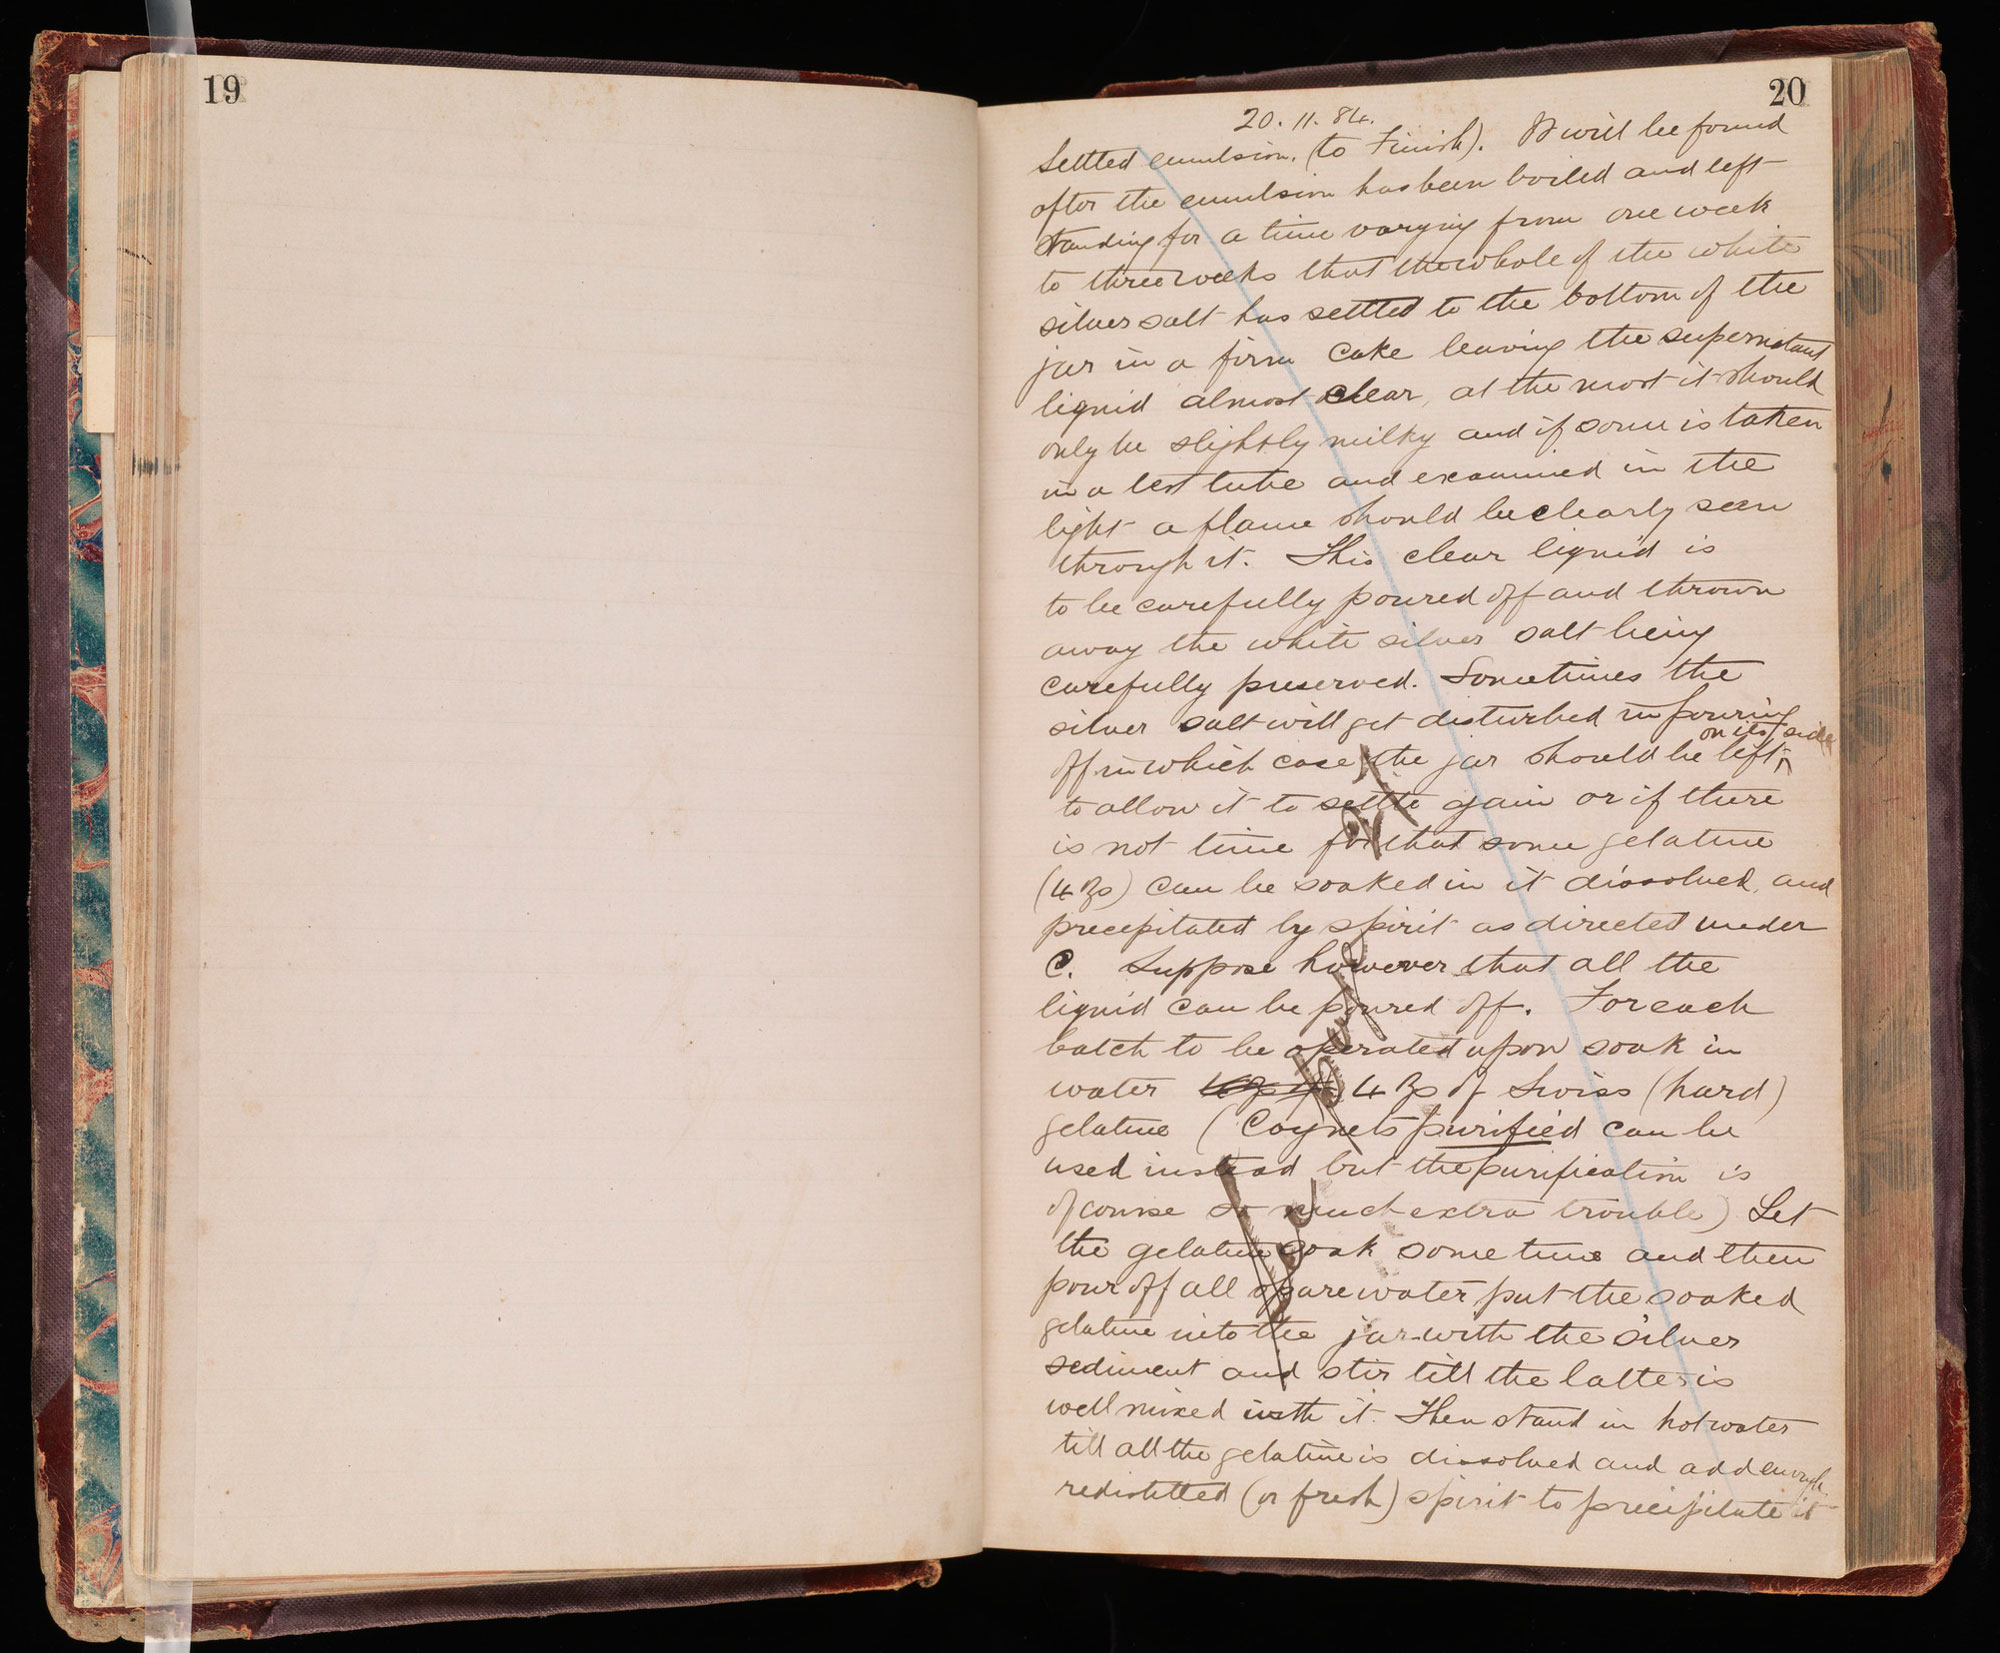 19
20
20. 11. 84.
Settled emulsion. (to Finish). It will be found
after the emulsion has been boiled and left
standing for a time varying from one week
to three weeks that the whole of the white
silver salt has settled to the bottom of the
jar in a firm cake leaving the supernatant
liquid almost clear, at the most it should
only be slightly milky and if some is taken
in a test tube and examined in the
light a flame should be clearly seen
through it. This clear liquid is
to be carefully poured off and thrown
away the white silver salt being
carefully preserved. Sometimes the
silver salt will get disturbed in pouring
on its side
off in which case the jar should be left
to allow it to settle again or if there
is not time for that some gelatine
(4 ℥s) can be soaked in it dissolved and
precipitated by spirit as directed under
C. Suppose however that all the
liquid can be poured off. For each
batch to be operated upon soak in
water 4 ℥s of Swiss (hard)
gelatine (Coignets purified can be
used instead but the purification is
of course so much extra trouble) Let
the gelatine soak some time and then
pour off all spare water put the soaked
gelatine into the jar with the silver
sediment and stir till the latter is
well mixed with it. Then stand in hot water
till all the gelatine is dissolved and add enough
redistilled (or fresh) spirit to precipitate it